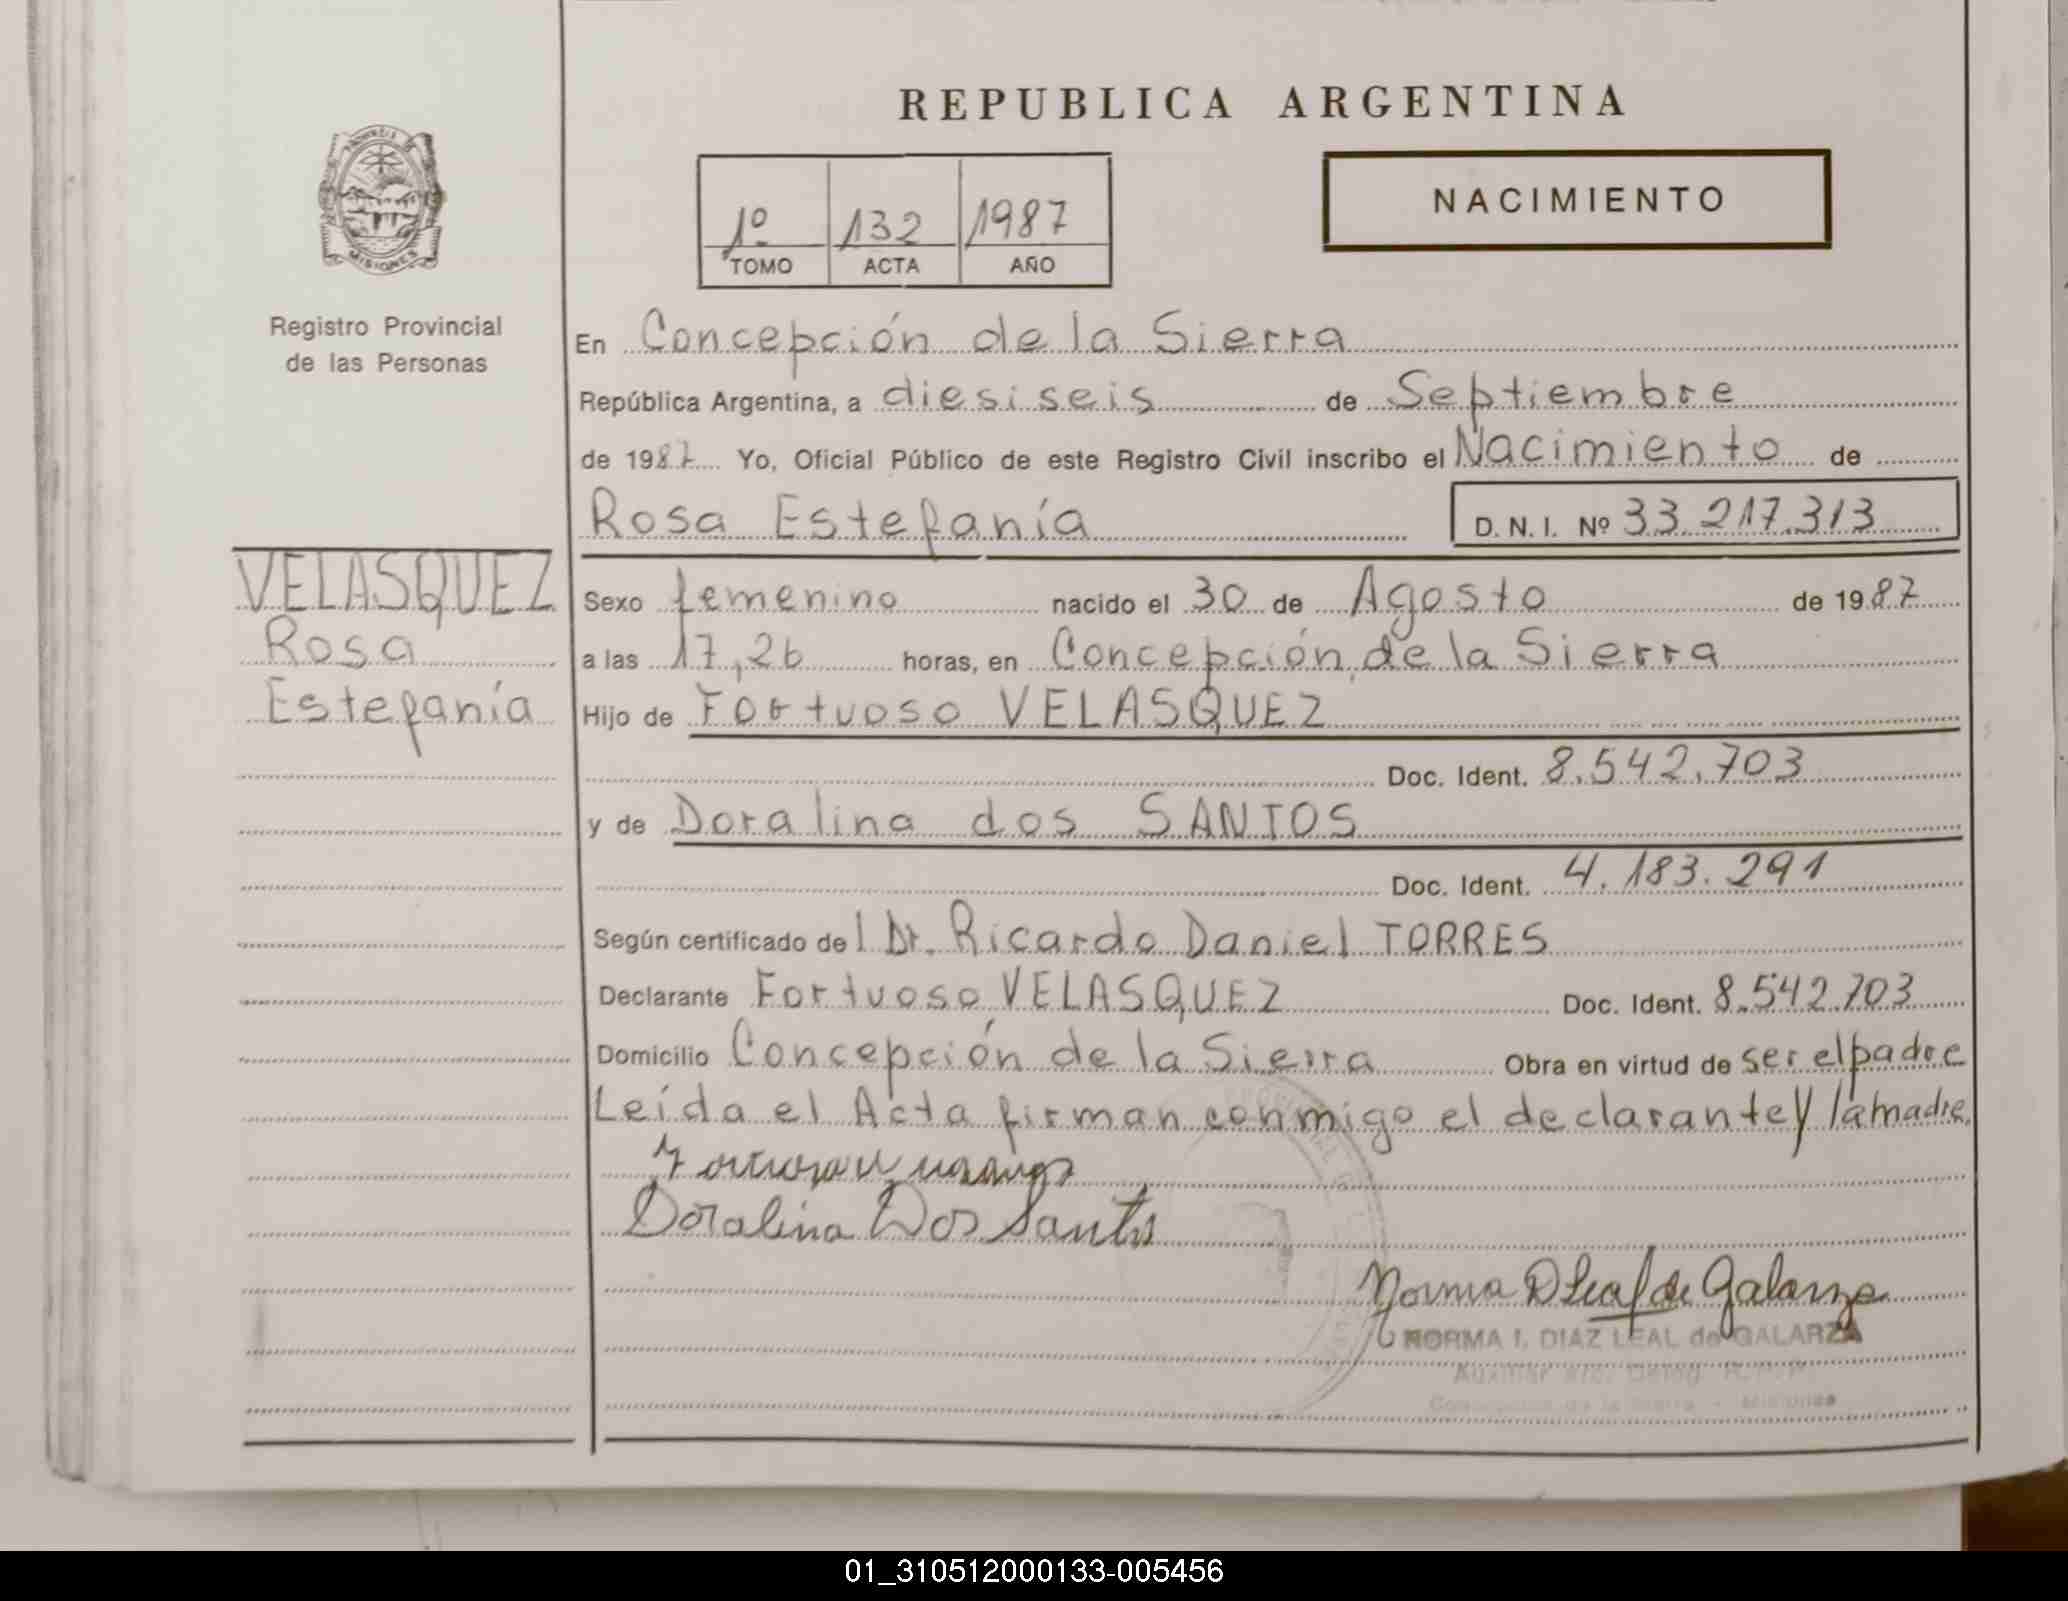 REPUBLICA ARGENTINA
PROVINCIA DE
MISIONES
Registro Provincial
de las Personas
1º 132 1987
TOMO ACTA AÑO
NACIMIENTO
En Concepción de la Sierra
República Argentina, a diesiseis de Septiembre
de 1987 Yo, Oficial Público de este Registro Civil inscribo el Nacimiento de
Rosa Estefanía D. N. I. Nº 33.217.313
VELASQUEZ
Rosa
Estefanía
Sexo femenino nacido el 30 de Agosto de 1987
a las 17,26 horas, en Concepción de la Sierra
Hijo de Fortuoso VELASQUEZ
Doc. Ident. 8.542.703
y de Doralina dos SANTOS
Doc. Ident. 4.183.291
Según certificado del Dr. Ricardo Daniel TORRES
Declarante Fortuoso VELASQUEZ Doc. Ident. 8.542.703
Domicilio Concepción de la Sierra Obra en virtud de ser el padre
Leída el Acta firman conmigo el declarante y la madre.
Doralina Dos Santos
Norma D Leal de Galarza
NORMA I. DIAZ LEAL de GALARZA
Auxiliar Deleg. R. P. P.
Concepción de la Sierra - Misiones
01_310512000133-005456